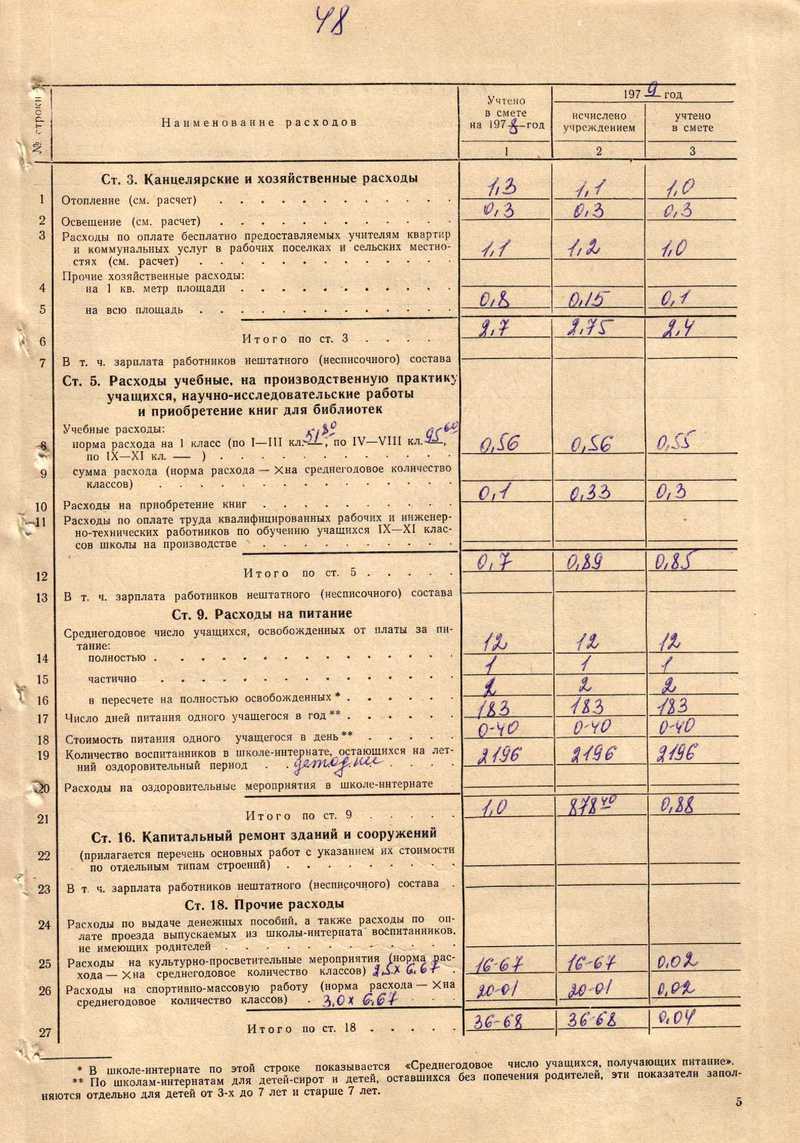 48
№ строки
Наименование расходов
Учтено в смете на 1978 год
1979 год
исчислено учреждением
учтено в смете
1 2 3
Ст. 3. Канцелярские и хозяйственные расходы
1 Отопление (см. расчет) 1,3 1,1 1,0
2 Освещение (см. расчет) 0,3 0,3 0,3
3 Расходы по оплате бесплатно предоставляемых учителям квартир
и коммунальных услуг в рабочих поселках и сельских местно-
стях (см. расчет) 1,1 1,2 1,0
Прочие хозяйственные расходы:
4 на 1 кв. метр площади
5 на всю площадь 0,8 0,15 0,1
6 Итого по ст. 3 2,7 2,75 2,4
7 В т. ч. зарплата работников нештатного (несписочного) состава
Ст. 5. Расходы учебные, на производственную практику
учащихся, научно-исследовательские работы
и приобретение книг для библиотек
Учебные расходы:
8 норма расхода на 1 класс (по I—III кл. 51,80, по IV—VIII кл. 95,60,
по IX—XI кл. — ) 0,56 0,56 0,55
9 сумма расхода (норма расхода — Хна среднегодовое количество
классов) 0,1 0,33 0,3
10 Расходы на приобретение книг
11 Расходы по оплате труда квалифицированных рабочих и инженер-
но-технических работников по обучению учащихся IX—XI клас-
сов школы на производстве
12 Итого по ст. 5 0,7 0,89 0,85
13 В т. ч. зарплата работников нештатного (несписочного) состава
Ст. 9. Расходы на питание
Среднегодовое число учащихся, освобожденных от платы за пи-
тание: 12 12 12
14 полностью 1 1 1
15 частично 2 2 2
16 в пересчете на полностью освобожденных * 183 183 183
17 Число дней питания одного учащегося в год ** 0-40 0-40 0-40
18 Стоимость питания одного учащегося в день **
19 Количество воспитанников в школе-интернате, остающихся на лет-
ний оздоровительный период детодни 2196 2196 2196
20 Расходы на оздоровительные мероприятия в школе-интернате
21 Итого по ст. 9 1,0 878 40 0,88
Ст. 16. Капитальный ремонт зданий и сооружений
22 (прилагается перечень основных работ с указанием их стоимости
по отдельным типам строений)
23 В т. ч. зарплата работников нештатного (несписочного) состава
Ст. 18. Прочие расходы
24 Расходы по выдаче денежных пособий, а также расходы по оп-
лате проезда выпускаемых из школы-интерната воспитанников,
не имеющих родителей
25 Расходы на культурно-просветительные мероприятия (норма рас-
хода — Хна среднегодовое количество классов) 2,5 х 6.67 16-67 16-67 0,02
26 Расходы на спортивно-массовую работу (норма расхода — Хна
среднегодовое количество классов) 3,0 х 6,67 20-01 20-01 0,02
27 Итого по ст. 18 36-68 36-68 0,04
* В школе-интернате по этой строке показывается «Среднегодовое число учащихся, получающих питание».
** По школам-интернатам для детей-сирот и детей, оставшихся без попечения родителей, эти показатели запол-
няются отдельно для детей от 3-х до 7 лет и старше 7 лет.
5